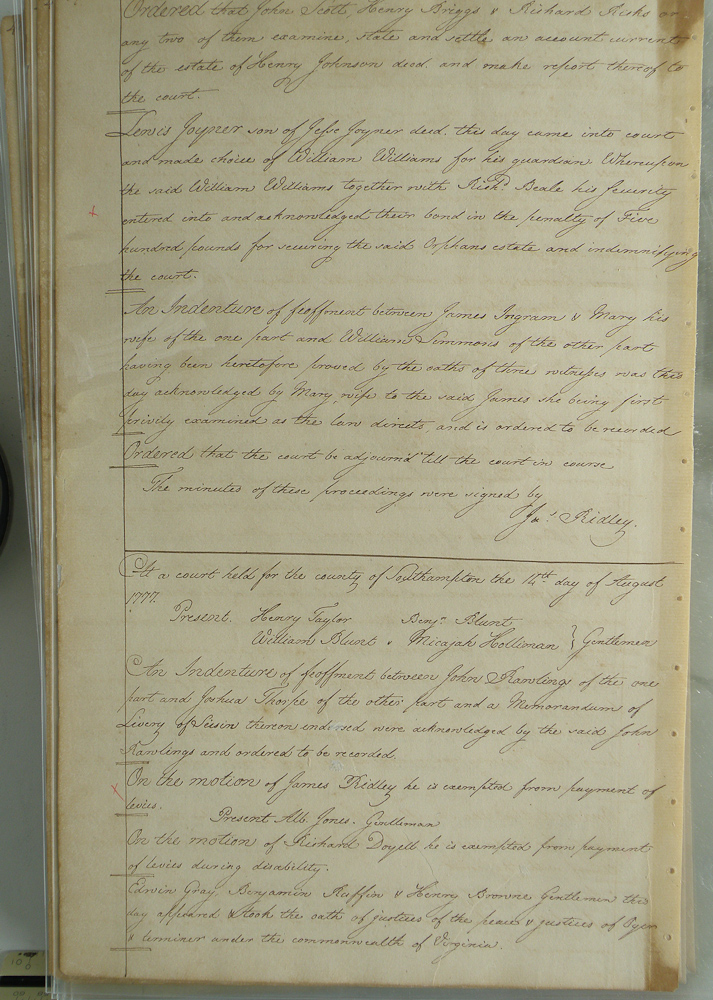 Ordered that John Scott, Henry Briggs & Richard Kirks or
any two of them examine, state and settle an account current
of the estate of Henry Johnson decd. and make report thereof to
the court.
Lewis Joyner son of Jesse Joyner decd. this day came into court
and made choice of William Williams for his guardian. Whereupon
the said William Williams together with Richd. Beale his Security
entered into and acknowledged their bond in the penalty of Five
hundred pounds for securing the said Orphans estate and indemnifying
the court.
An Indenture of feoffment between James Ingram & Mary his
wife of the one part and William Simmons of the other part
having been heretofore proved by the oaths of three witnesses was this
day acknowledged by Mary, wife to the said James she being first
privily examined as the law directs, and is ordered to be recorded
Ordered that the court be adjourn'd till the court in course
The minutes of these proceedings were signed by
Jas. Ridley.
At a court held for the county of Southampton the 14th. day of August
1777.
Present. Henry Taylor Benj. Blunt
William Blunt & Micajah Holliman } Gentlemen
An Indenture of feoffment between John Rawlings of the one
part and Joshua Thorpe of the other part and a Memorandum of
Livery of Seisin thereon indorsed were acknowledged by the said John
Rawlings and ordered to be recorded.
On the motion of James Ridley he is exempted from payment of
levies.
Present Alb. Jones. Gentleman
On the motion of Richard Doyell he is exempted from payment
of levies during disability.
Edwin Gray, Benjamin Ruffin & Henry Browne Gentlemen this
day appeared & took the oath of justices of the peace & justices of Oyer
& terminer under the commonwealth of Virginia.